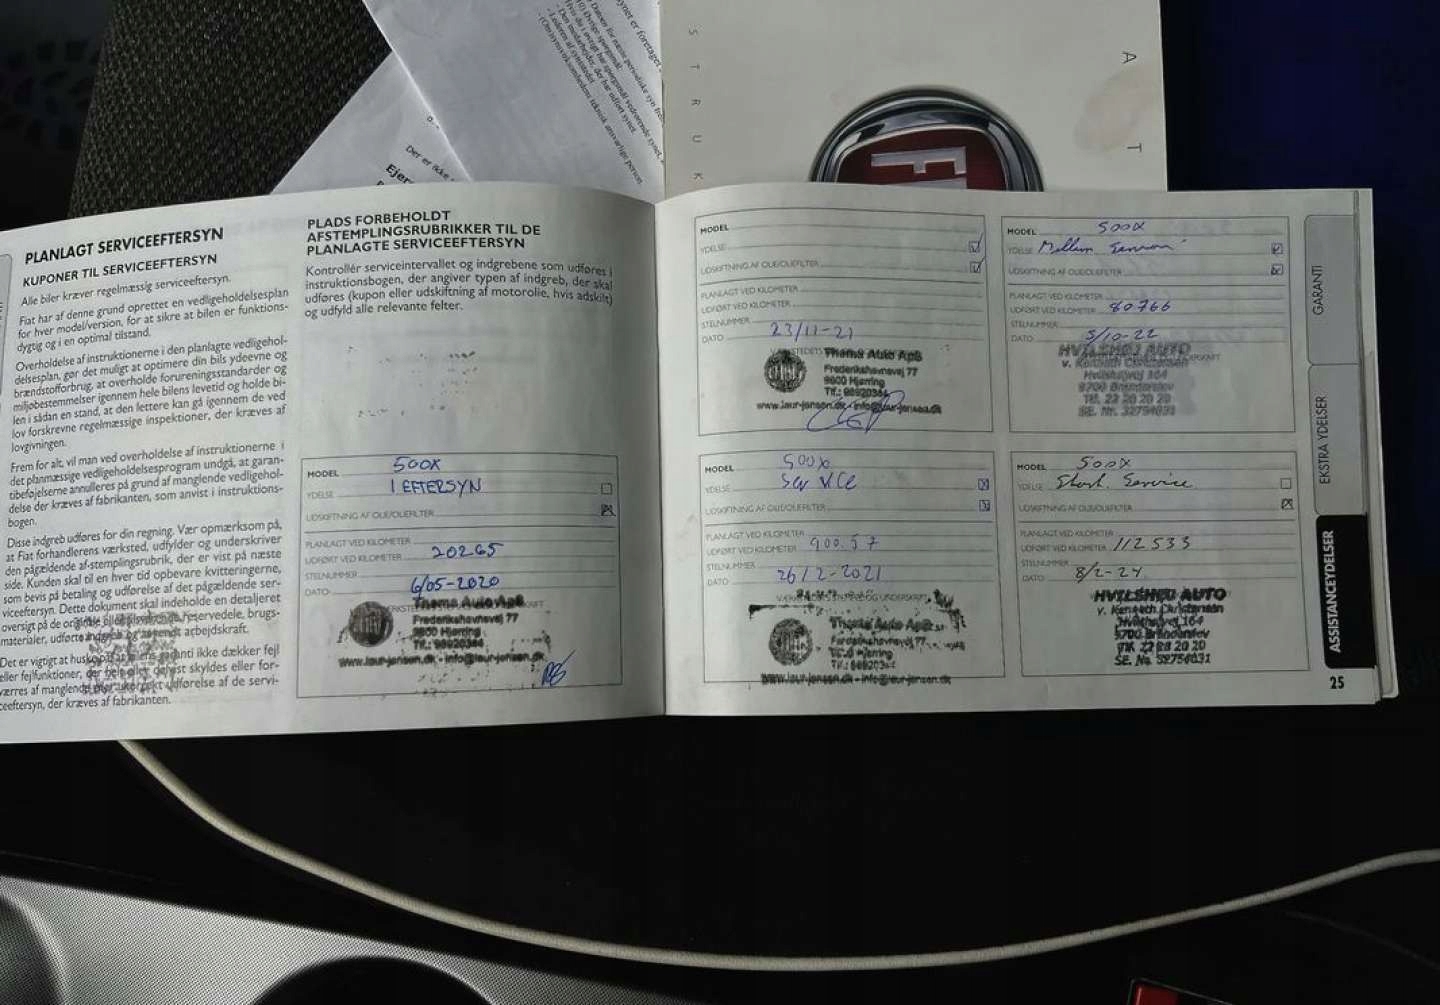 S T R U K
A T
Der er ikke
Ejer
PLANLAGT SERVICEEFTERSYN
KUPONER TIL SERVICEEFTERSYN
Alle biler kræver regelmæssig serviceeftersyn.
Fiat har af denne grund oprettet en vedligeholdelsesplan
for hver model/version, for at sikre at bilen er funktions-
dygtig og i en optimal tilstand.
Overholdelse af instruktionerne i den planlagte vedligehol-
delsesplan, gør det muligt at optimere din bils ydeevne og
brændstofforbrug, at overholde forureningsstandarder og
miljøbestemmelser igennem hele bilens levetid og holde bi-
len i sådan en stand, at den lettere kan gå igennem de ved
lov forskrevne regelmæssige inspektioner, der kræves af
lovgivningen.
Frem for alt, vil man ved overholdelse af instruktionerne i
det planmæssige vedligeholdelsesprogram undgå, at garan-
tibeføjelserne annulleres på grund af manglende vedligehol-
delse der kræves af fabrikanten, som anvist i instruktions-
bogen.
Disse indgreb udføres for din regning. Vær opmærksom på,
at Fiat forhandlerens værksted, udfylder og underskriver
den pågældende af-stemplingsrubrik, der er vist på næste
side. Kunden skal til en hver tid opbevare kvitteringerne,
som bevis på betaling og udførelse af det pågældende ser-
viceeftersyn. Dette dokument skal indeholde en detaljeret
oversigt på de originale reservedele, brugs-
materialer, udførte indgreb og anvendt arbejdskraft.
Det er vigtigt at huske garanti ikke dækker fejl
eller fejlfunktioner, der helt eller delvist skyldes eller for-
værres af manglende eller ukorrekt udførelse af de servi-
ceeftersyn, der kræves af fabrikanten.
PLADS FORBEHOLDT
AFSTEMPLINGSRUBRIKKER TIL DE
PLANLAGTE SERVICEEFTERSYN
Kontrollér serviceintervallet og indgrebene som udføres i
instruktionsbogen, der angiver typen af indgreb, der skal
udføres (kupon eller udskiftning af motorolie, hvis adskilt)
og udfyld alle relevante felter.
MODEL 500X
YDELSE 1 EFTERSYN
UDSKIFTNING AF OLIE/OLIEFILTER
PLANLAGT VED KILOMETER
UDFØRT VED KILOMETER 20265
STELNUMMER
DATO 6/05-2020
Thema Auto ApS
Frederikshavnsvej 77
9800 Hjørring
Tlf.: 98920364
www.laur-jensen.dk - info@laur-jensen.dk
MODEL
YDELSE
UDSKIFTNING AF OLIE/OLIEFILTER
PLANLAGT VED KILOMETER
UDFØRT VED KILOMETER
STELNUMMER
DATO 23/11-21
Thema Auto ApS
Frederikshavnsvej 77
9800 Hjørring
Tlf.: 98920364
www.laur-jensen.dk - info@laur-jensen.dk
MODEL 500X
YDELSE Mellem Service
UDSKIFTNING AF OLIE/OLIEFILTER
PLANLAGT VED KILOMETER
UDFØRT VED KILOMETER 80766
STELNUMMER
DATO 5/10-22
HVILSHØJ AUTO
v. Kenneth Christensen
Hvilshøjvej 164
9700 Brønderslev
Tlf. 22 28 20 20
SE. Nr. 32754031
MODEL 500X
YDELSE Service
UDSKIFTNING AF OLIE/OLIEFILTER
PLANLAGT VED KILOMETER
UDFØRT VED KILOMETER 900.57
STELNUMMER
DATO 26/2-2021
Thema Auto ApS
www.laur-jensen.dk - info@laur-jensen.dk
MODEL 500X
YDELSE Stort Service
UDSKIFTNING AF OLIE/OLIEFILTER
PLANLAGT VED KILOMETER
UDFØRT VED KILOMETER 112533
STELNUMMER
DATO 8/2-24
HVILSHØJ AUTO
v. Kenneth Christensen
Hvilshøjvej 164
9700 Brønderslev
Tlf. 22 28 20 20
SE. No. 32754031
GARANTI
EKSTRA YDELSER
ASSISTANCEYDELSER
25